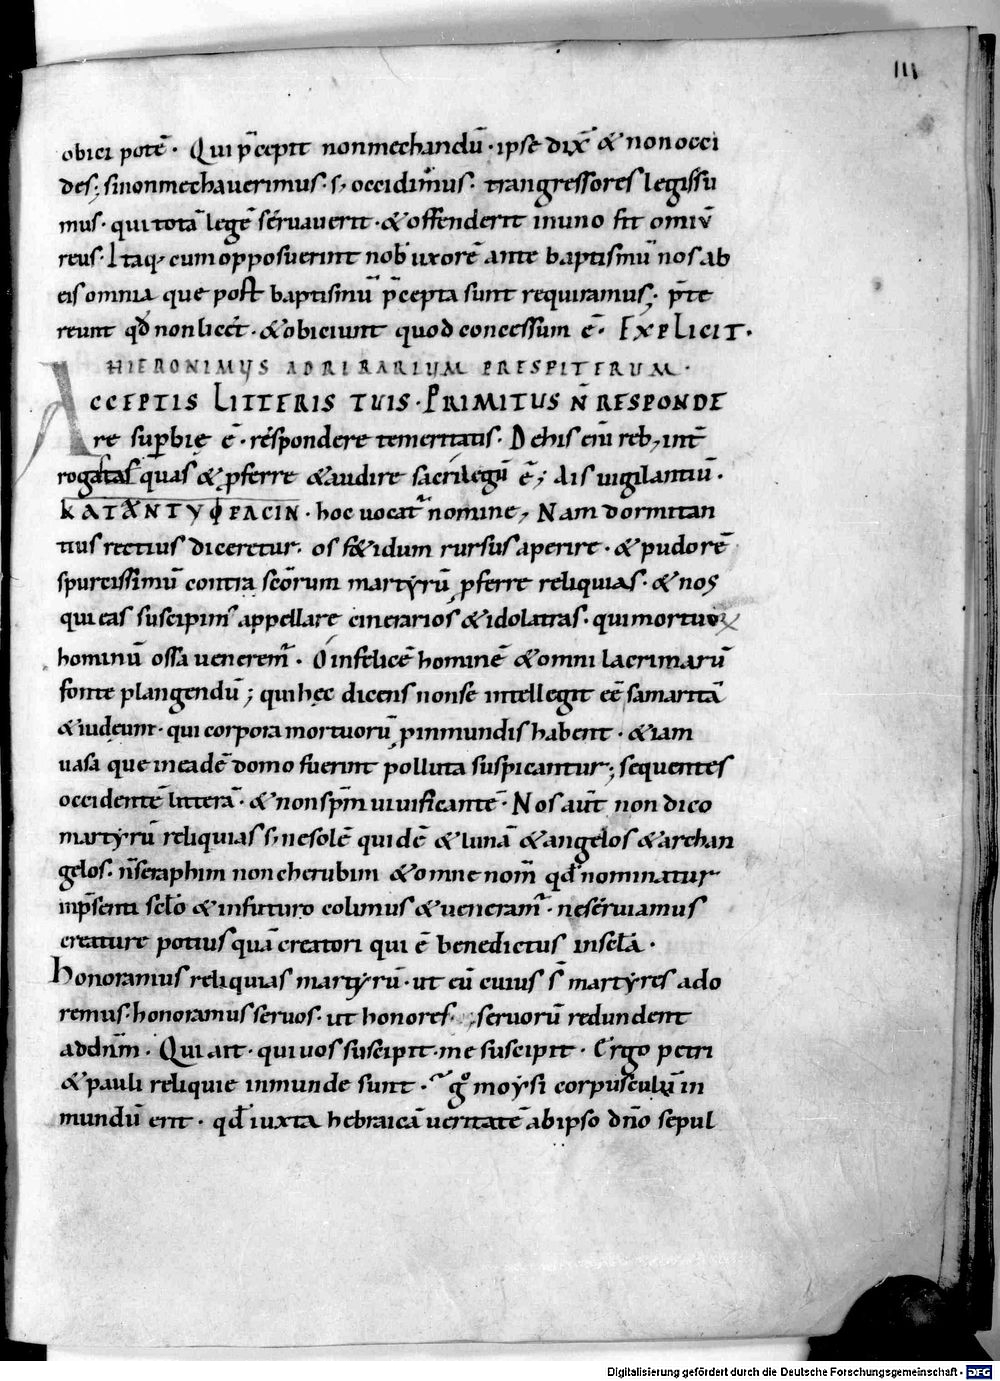 111
obici potē · Qui p̄cepit non mechandū · ipse dix̄ & non occi
des; si non mechauerimus · s; occiderimus · trangressores legis su
mus · qui totā legē seruauerit · & offenderit in uno fit omiū
reus · Itaq; cum opposuerint nob uxorē ante baptismū nos ab
eis omnia que post baptismū p̄cepta sunt requiramus; p̄te
reunt qd̄ non licet · & obiciunt quod concessum ē · EXPLICIT ·
HIERONIMUS AD RIRARIUM PRESPITERUM ·
ACCEPTIS LITTERIS TUIS · PRIMITUS N̄ RESPONDE
re sup̱bię ē · respondere temeritatis · De his eni reb; int̄
rogas quas & ꝓferre & audire sacrilegū ē; Ais uigilantiū ·
KATANTYΦRACIN · hoc uocat nomine, Nam dormitan
tius rectius diceretur · os fetidum rursus aperire · & pudorē
spurcissimū contra scōrum martyrū ꝓferre reliquias · & nos
qui eas suscipim' appellare cinerarios & idolatras · qui mortuoꝝ
hominū ossa ueneremur · O infelicē hominē & omni lacrimarū
fonte plangendū; qui hęc dicens non se intellegit eē samaritā
& iudęum · qui corpora mortuorū ꝓ inmundis habent · & iam
uasa que in eadē domo fuerint polluta suspicantur; sequentes
occidentē litterā · & non sp̄m uiuificantē · Nos aūt non dico
martyrū reliquias s; ne solē quidē & lunā & angelos & archan
gelos · n̄ seraphim non cherubim & omne nom̄ qd̄ nominatur
in p̄senti sclo & in futuro colimus & ueneramur · ne seruiamus
creature potius quā creatori qui ē benedictus in scla ·
honoramus reliquias martyrū · ut eū cuius s̄ martyres ado
remus · honoramus seruos · ut honores seruorū redundent
ad dnm̄ · Qui ait · qui uos suscipit · me suscipit · Ergo petri
& pauli reliquie inmunde sunt · gͦ moysi corpusculū in
mundū erit · qd̄ iuxta hebraicā ueritatē ab ipso dn̄o sepul
Digitalisierung gefördert durch die Deutsche Forschungsgemeinschaft - DFG